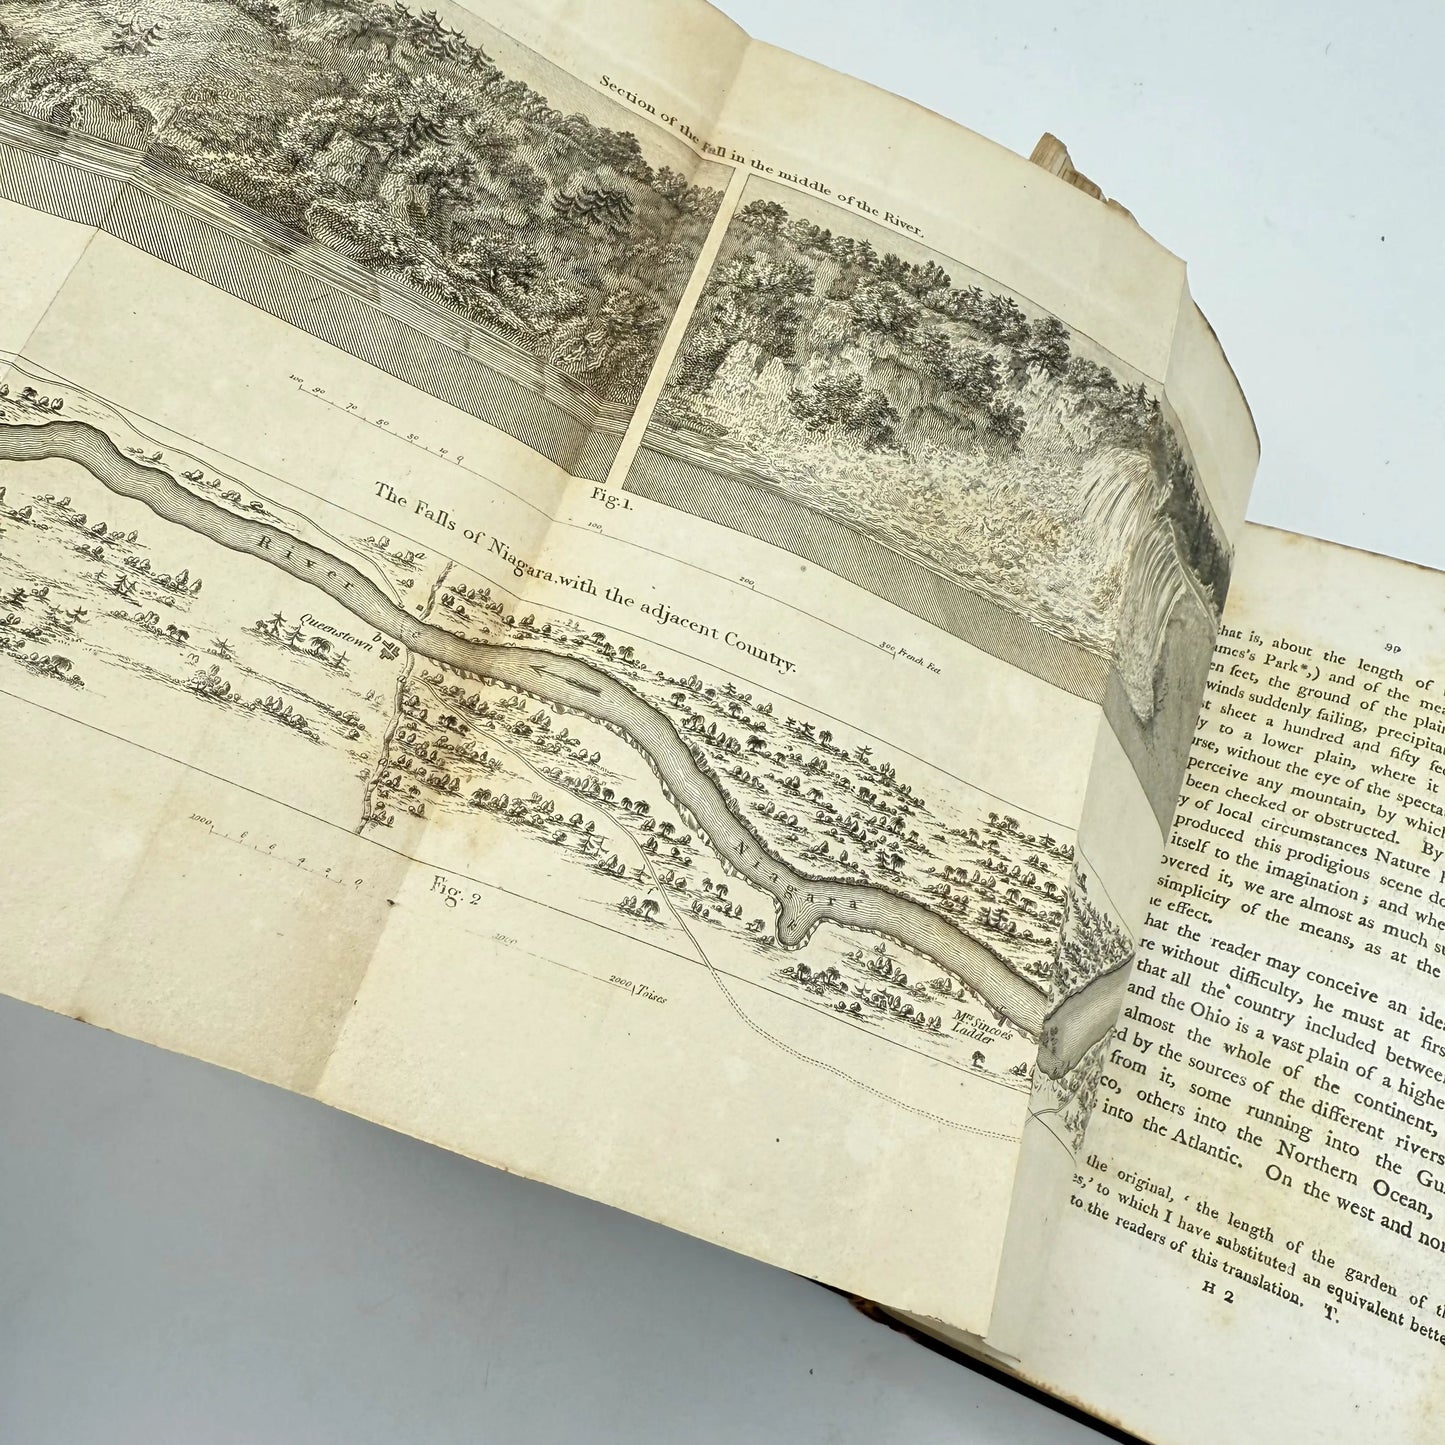 Section of the fall in the middle of the River.
100 90 70 50 30 10 0
Fig. 1.
100 200 300 French Feet
The Falls of Niagara, with the adjacent Country.
River
a
Queenstown b
c
Niagara
1000 8 6 4 2 0
Fig. 2
1000 2000 Toises
Mrs. Sincoe's
Ladder
99
that is, about the length of
ames's Park*,) and of the
en feet, the ground of the plain
winds suddenly failing,
sheet a hundred and fifty
to a lower plain, where it
without the eye of the
perceive any mountain, by which
been checked or obstructed. By
of local circumstances Nature
produced this prodigious scene
itself to the imagination; and
overed it, we are almost as much
simplicity of the means, as at the
effect.
hat the reader may conceive an
re without difficulty, he must at
that all the country included
and the Ohio is a vast plain of a
almost the whole of the continent,
by the sources of the different rivers
from it, some running into the
co, others into the Northern Ocean,
into the Atlantic. On the west and
the original, ' the length of the garden of
es,' to which I have substituted an equivalent
to the readers of this translation. T.
H 2